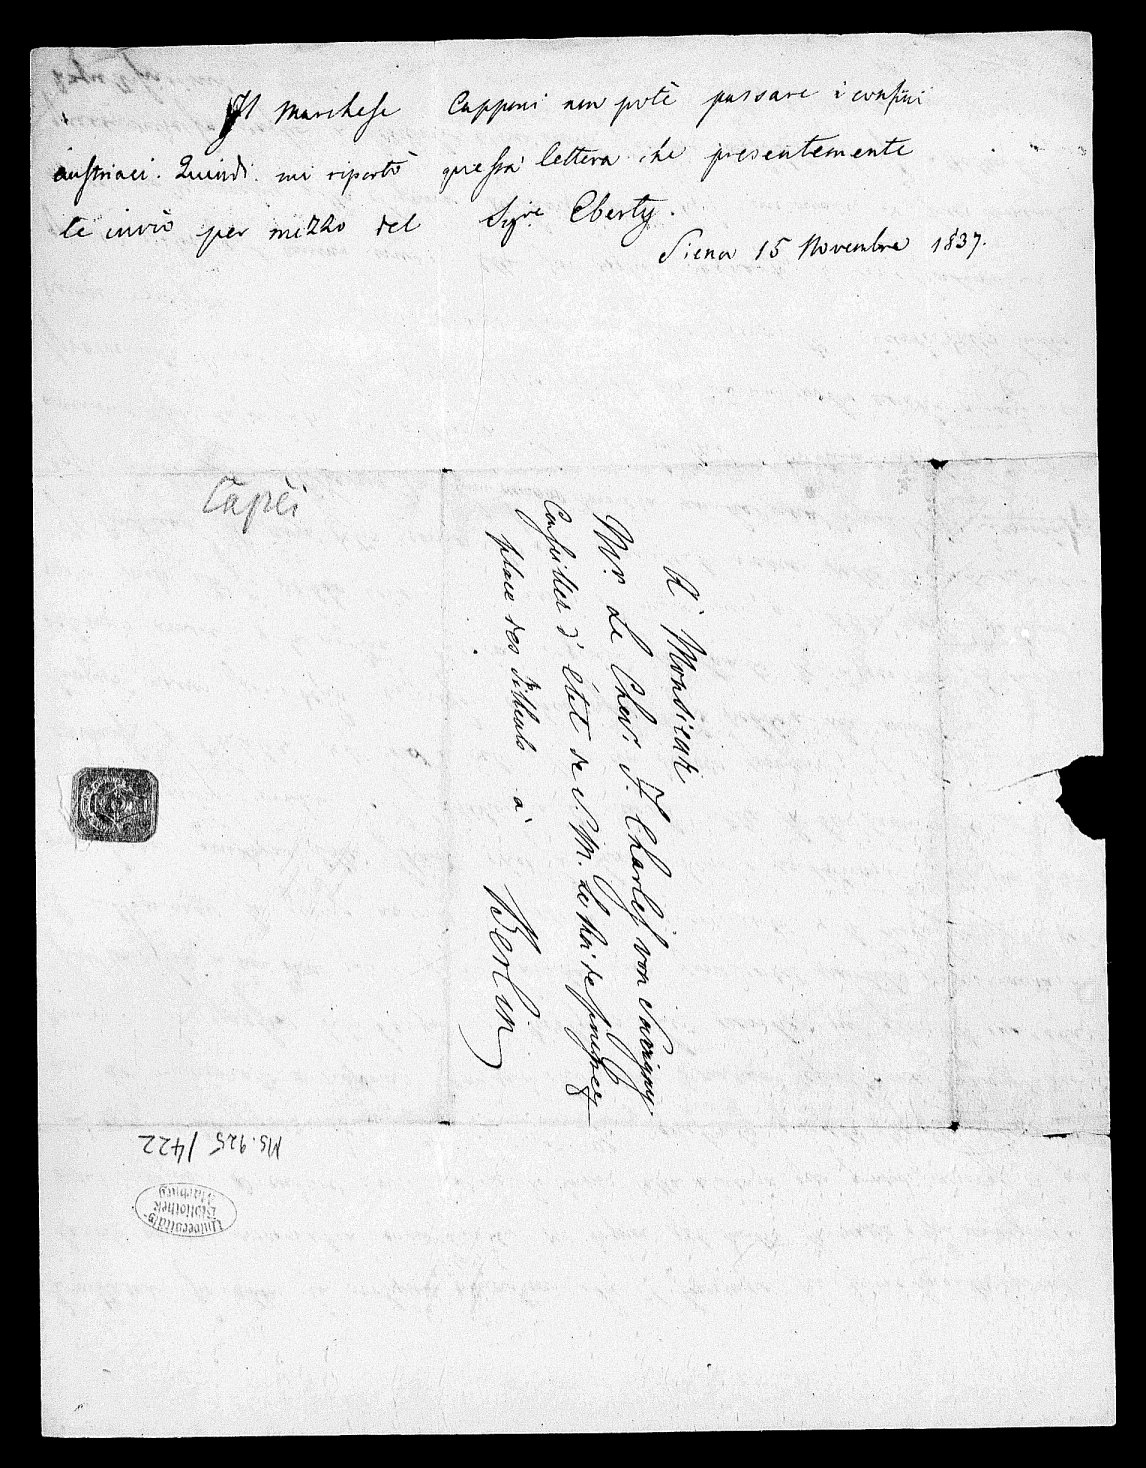 Il Marchese Capponi non potè passare i confini
austriaci. Quindi mi riportò questa lettera che presentemente
le invio per mezzo del Sigre Eberty.
Siena 15 Novembre 1837.
Capei
A Monsieur
Mr. Le Chev. F. Charles von Savigny
Conseiller d'état de S. M. Le Roi de prusse
place des Tilleuls à
Berlin
Ms. 925/422
Universitäts-
Bibliothek
Marburg